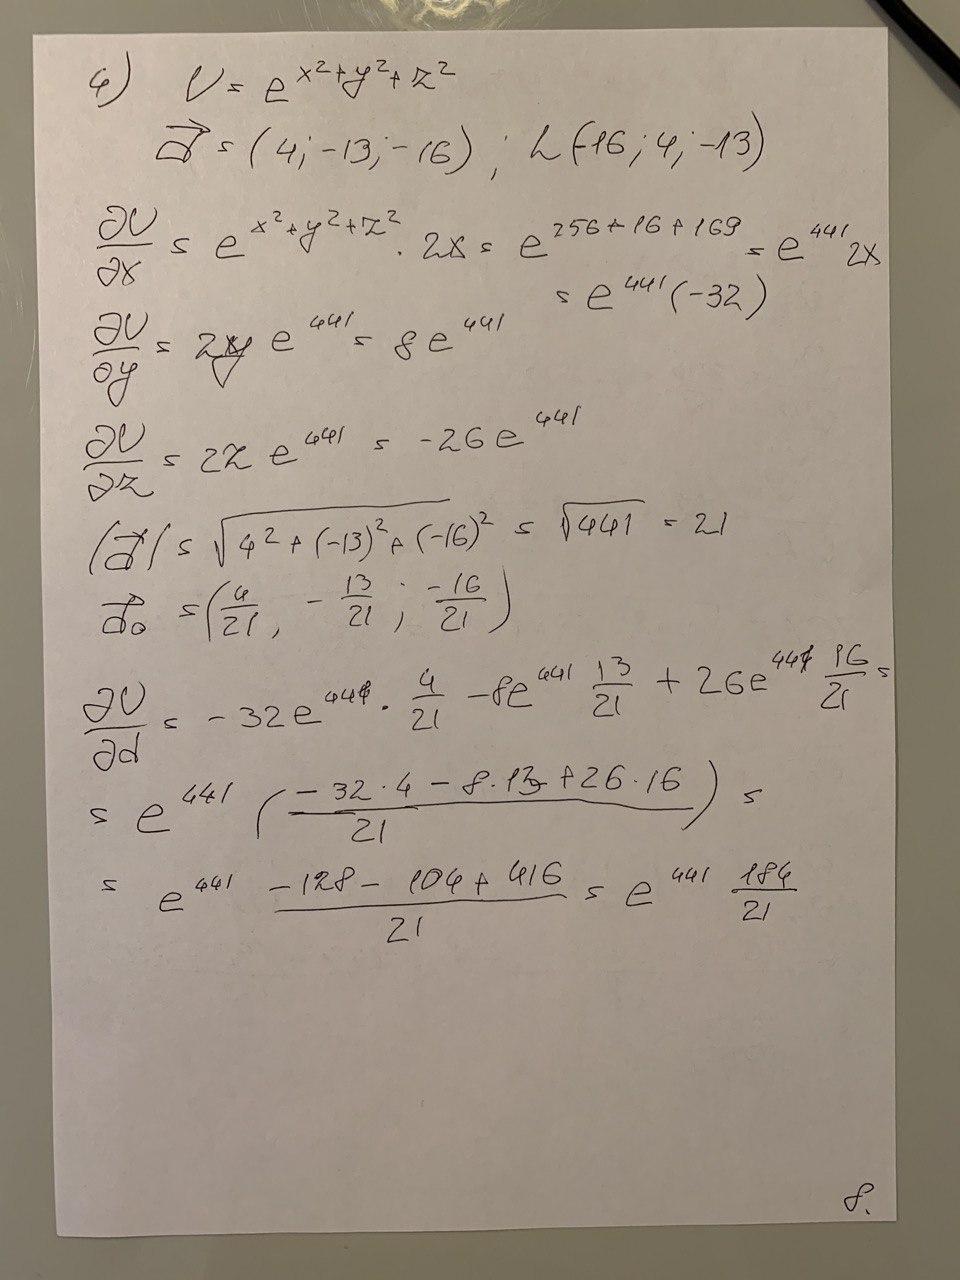 4) U = e^{x²+y²+z²}
\vec{d} = (4; -13; -16) ; L(-16; 4; -13)
∂U/∂x = e^{x²+y²+z²} · 2x = e^{256+16+169} = e^{441} 2x
= e^{441}(-32)
∂U/∂y = 2y e^{441} = 8e^{441}
∂U/∂z = 2z e^{441} = -26e^{441}
|\vec{d}| = √(4² + (-13)² + (-16)²) = √441 = 21
\vec{d}₀ = (4/21, -13/21; -16/21)
∂U/∂d = -32e^{441} · 4/21 - 8e^{441} 13/21 + 26e^{441} 16/21 =
= e^{441} ((-32·4 - 8·13 + 26·16)/21) =
= e^{441} (-128 - 104 + 416)/21 = e^{441} 184/21
8.